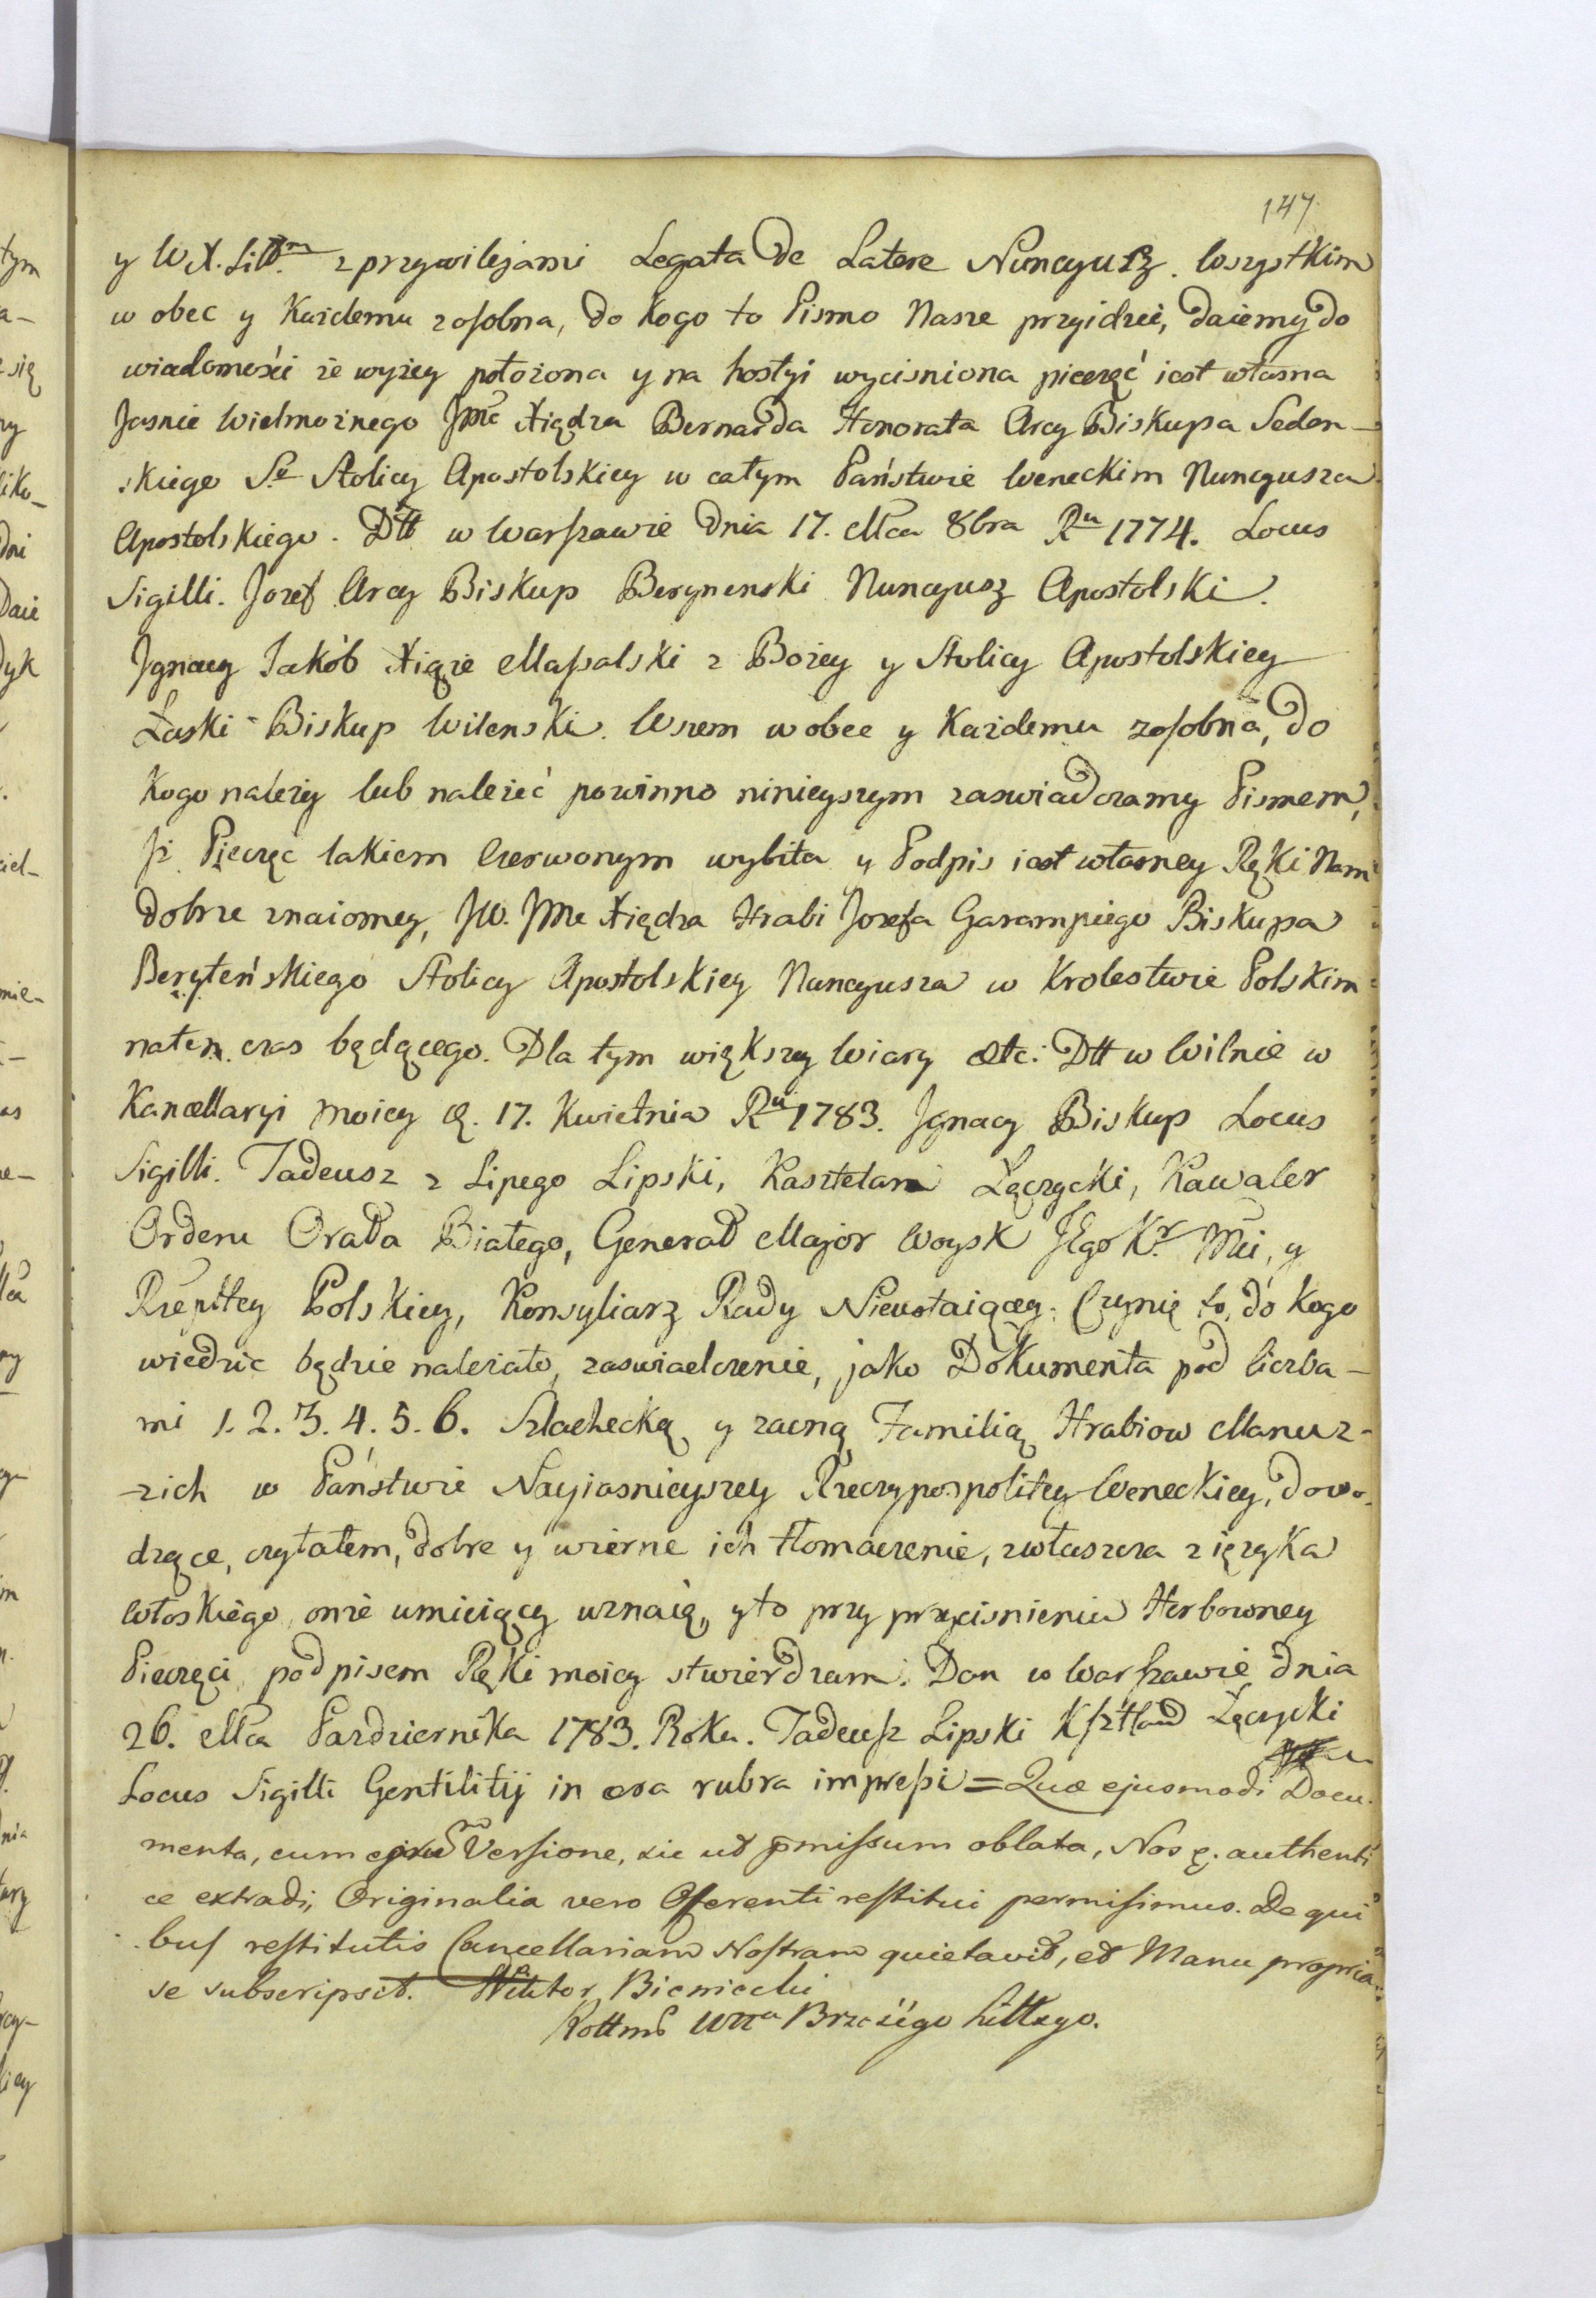 147
y W X. Litt. z przywilejami Legata De Latere Nuncyusz. Wszystkim
w obec y Każdemu zosobna, do Kogo to Pismo Nasze przyidzie, daiemy do
wiadomości że wyżey położona y na hostyi wyciśniona pieczęć iest własna
Jasnie Wielmożnego Jmć Xiędza Bernarda Honorata Arcy Biskupa Seden-
skiego Se Stolicy Apostolskiey w całym Państwie Weneckim Nuncyusza
Apostolskiego. Dtt w Warszawie Dnia 17. Mca 8bra Ru 1774. Locus
Sigilli. Jozef Arcy Biskup Berynenski Nuncyusz Apostolski.
Jgnacy Jakób Xiąże Massalski z Bożey y Stolicy Apostolskiey
Łaski Biskup Wilenski. Wszem wobec y Każdemu zosobna, do
Kogo należy lub należeć powinno ninieyszym zaswiadczamy Pismem,
Jż Pięczęc lakiem Czerwonym wybita y Podpis iest własney Ręki Nam
dobrze znaiomey, JW. Jme Xiędza Hrabi Jozefa Garampiego Biskupa
Beryteńskiego Stolicy Apostolskiey Nuncyusza w Krolestwie Polskim
naten czas będącego. Dla tym większey Wiary etc: Dtt w Wilnie w
Kancellaryi moiey d. 17. Kwietnia Ru 1783. Jgnacy Biskup Locus
Sigilli. Tadeusz z Lipego Lipski, Kasztelan Łęczycki, Kawaler
Orderu Orała Białego, Generał Major Woysk JEgo Kr. Mci, y
Rzepltey Polskiey, Konsyliarz Rady Nieustaiącey: Czynię to, do Kogo
wiedzie będzie należało, zaswiadczenie, jako Dokumenta pod liczba-
mi 1. 2. 3. 4. 5. 6. Szlachecką y zacną Familią Hrabiow Manuz-
-zich w Państwie Nayiasnieyszey Rzeczypospolitey Weneckiey, dowo-
dzące, czytałem, dobre y wierne ich tłomaczenie, zwłaszcza z ięzyka
Włoskiego onże umieiący uznaię, y to przy przycisnieniu Herbowney
Pieczęci, podpisem Ręki moiey stwierdzam. Dan w Warszawie dnia
26. Mca Pazdziernika 1783. Roku. Tadeusz Lipski Ksztlan Łęczycki
Locus Sigilli Gentilitij in cera rubra impressi = Quæ ejusmodi Docu-
menta, cum Versione, sic ut pmissum oblata, Nos authenti
ce extradi, Originalia vero Offerenti restitui permisimus. De qui
bus restitutis Cancellariam Nostram quietavit, et Manu propria
se subscripsit. Wiktor Bieniecki
Rottm Wttа Brześgo Littgo.